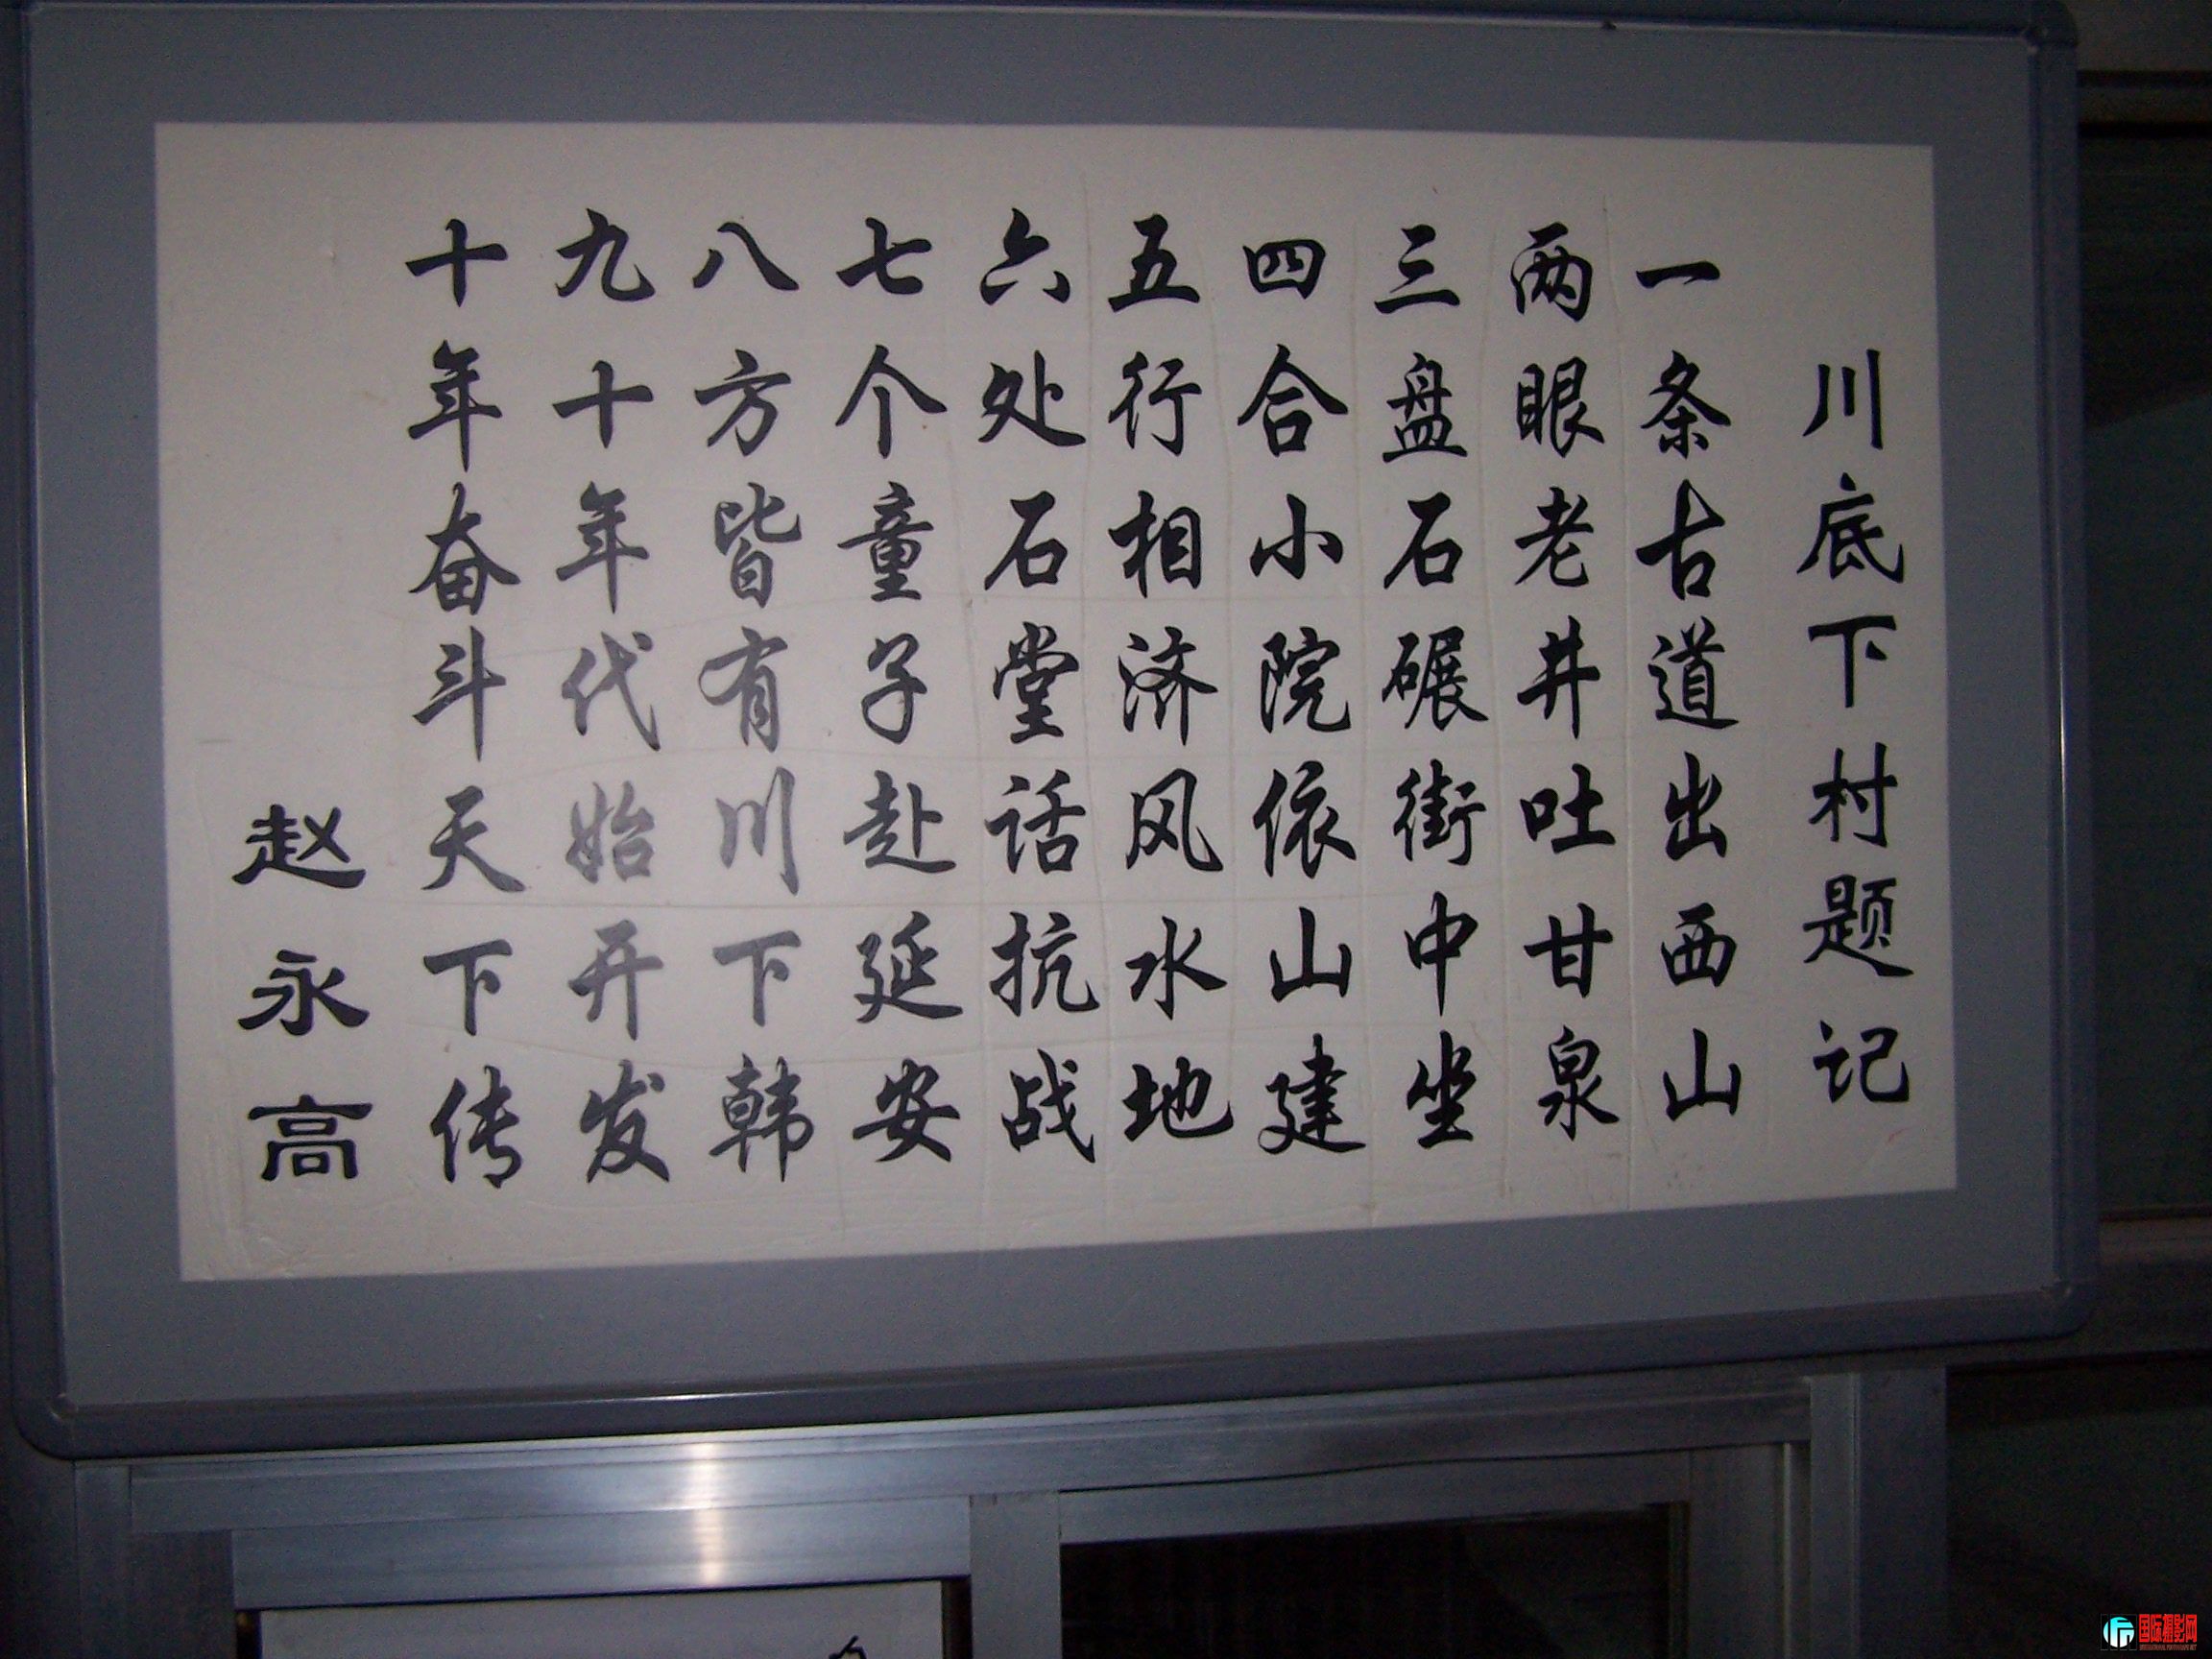 川底下村题记
一条古道出西山
两眼老井吐甘泉
三盘石碾街中坐
四合小院依山建
五行相济风水地
六处石堂话抗战
七个童子赴延安
八方皆有川下韩
九十年代始开发
十年奋斗天下传
赵永高
国际摄影网